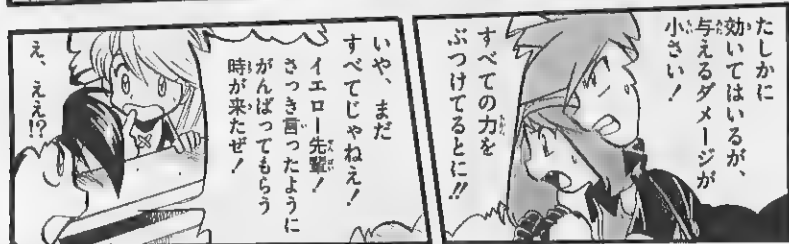 たしかに
効いてはいるが、
与えるダメージが
小さい!
すべての力を
ぶつけてるとに!!
いや、まだ
すべてじゃねえ!
イエロー先輩!
さっき言ったように
がんばってもらう
時が来たぜ!
え、ええ!?